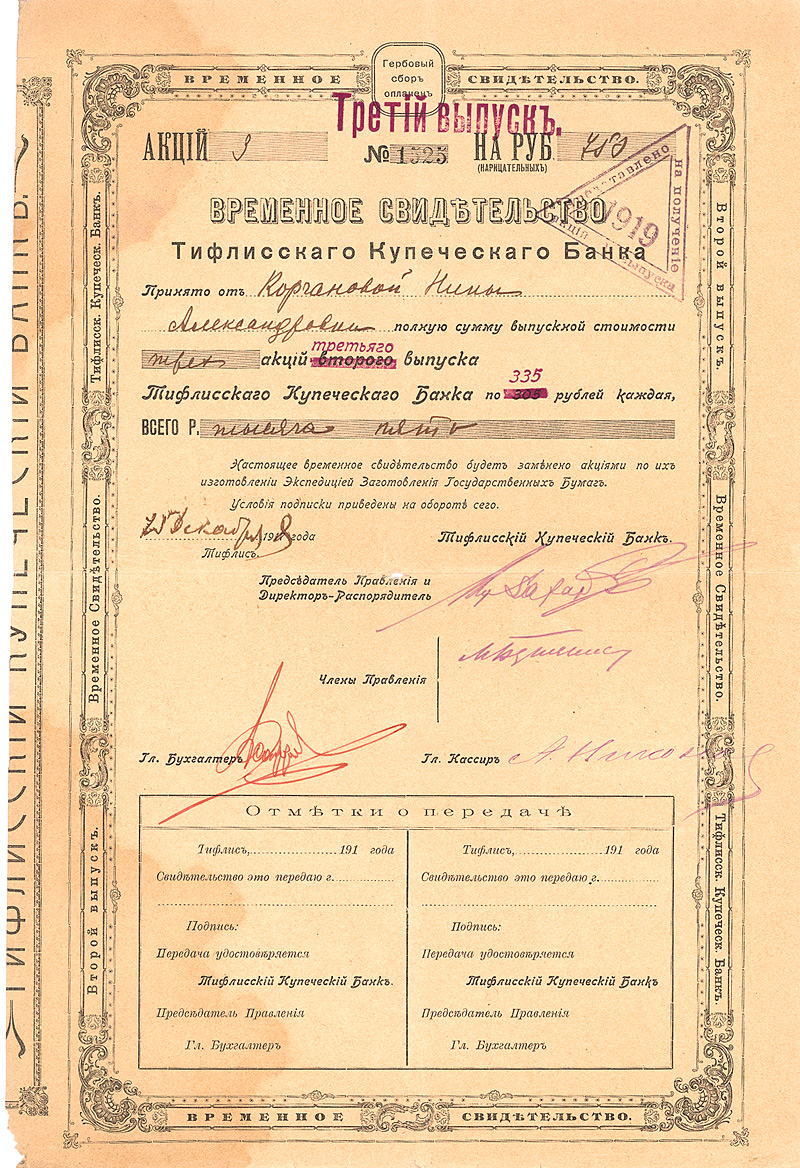 Гербовый
сборъ
оплаченъ
ВРЕМЕННОЕ СВИДѢТЕЛЬСТВО.
Третій выпускъ.
АКЦІЙ 3 № 1525 НА РУБ. 750
(НАРИЦАТЕЛЬНЫХЪ)
на полученіе
1919
выпуска
ВРЕМЕННОЕ СВИДѢТЕЛЬСТВО
Тифлисскаго Купеческаго Банка
Принято отъ Коргановой Нины
Александровны полную сумму выпускной стоимости
третьяго
трех акцій второго выпуска
335
Тифлисскаго Купеческаго Банка по 305 рублей каждая,
ВСЕГО Р. тысяча пять
Настоящее временное свидѣтельство будетъ замѣнено акціями по ихъ
изготовленіи Экспедиціей Заготовленія Государственныхъ Бумагъ.
Условія подписки приведены на оборотѣ сего.
декабря 1918 года
Тифлисъ.
Тифлисскій Купеческій Банкъ.
Предсѣдатель Правленія и
Директоръ-Распорядитель
Члены Правленія
Гл. Бухгалтеръ
Гл. Кассиръ
Отмѣтки о передачѣ
Тифлисъ, 191 года
Свидѣтельство это передаю г.
Подпись:
Передача удостовѣряется
Тифлисскій Купеческій Банкъ.
Предсѣдатель Правленія
Гл. Бухгалтеръ
Тифлисъ, 191 года
Свидѣтельство это передаю г.
Подпись:
Передача удостовѣряется
Тифлисскій Купеческій Банкъ
Предсѣдатель Правленія
Гл. Бухгалтеръ
ВРЕМЕННОЕ СВИДѢТЕЛЬСТВО.
Второй выпускъ. Временное Свидѣтельство. Тифлисск. Купеческ. Банкъ.
Второй выпускъ. Временное Свидѣтельство. Тифлисск. Купеческ. Банкъ.
ТИФЛИССКІЙ КУПЕЧЕСКІЙ БАНКЪ.